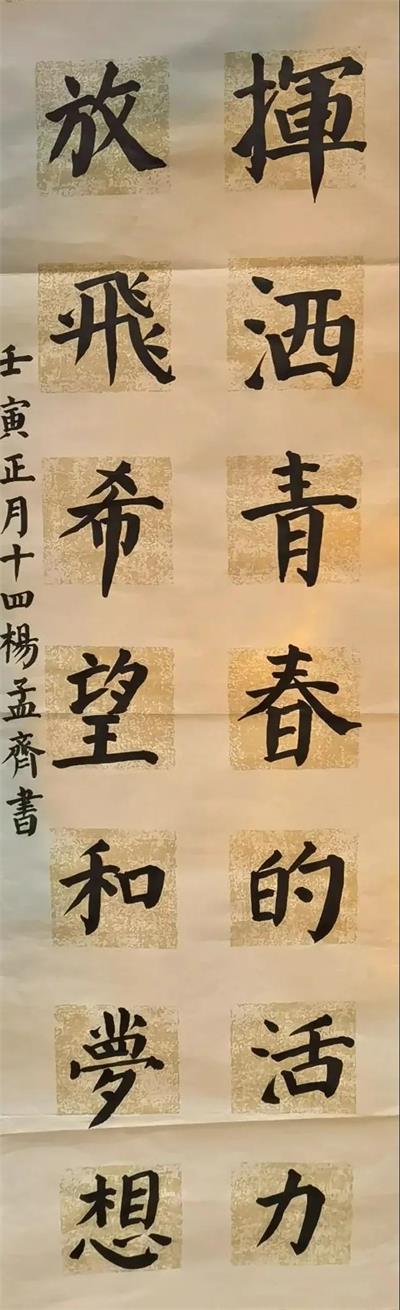 揮洒青春的活力
放飛希望和夢想
壬寅正月十四楊孟齊書